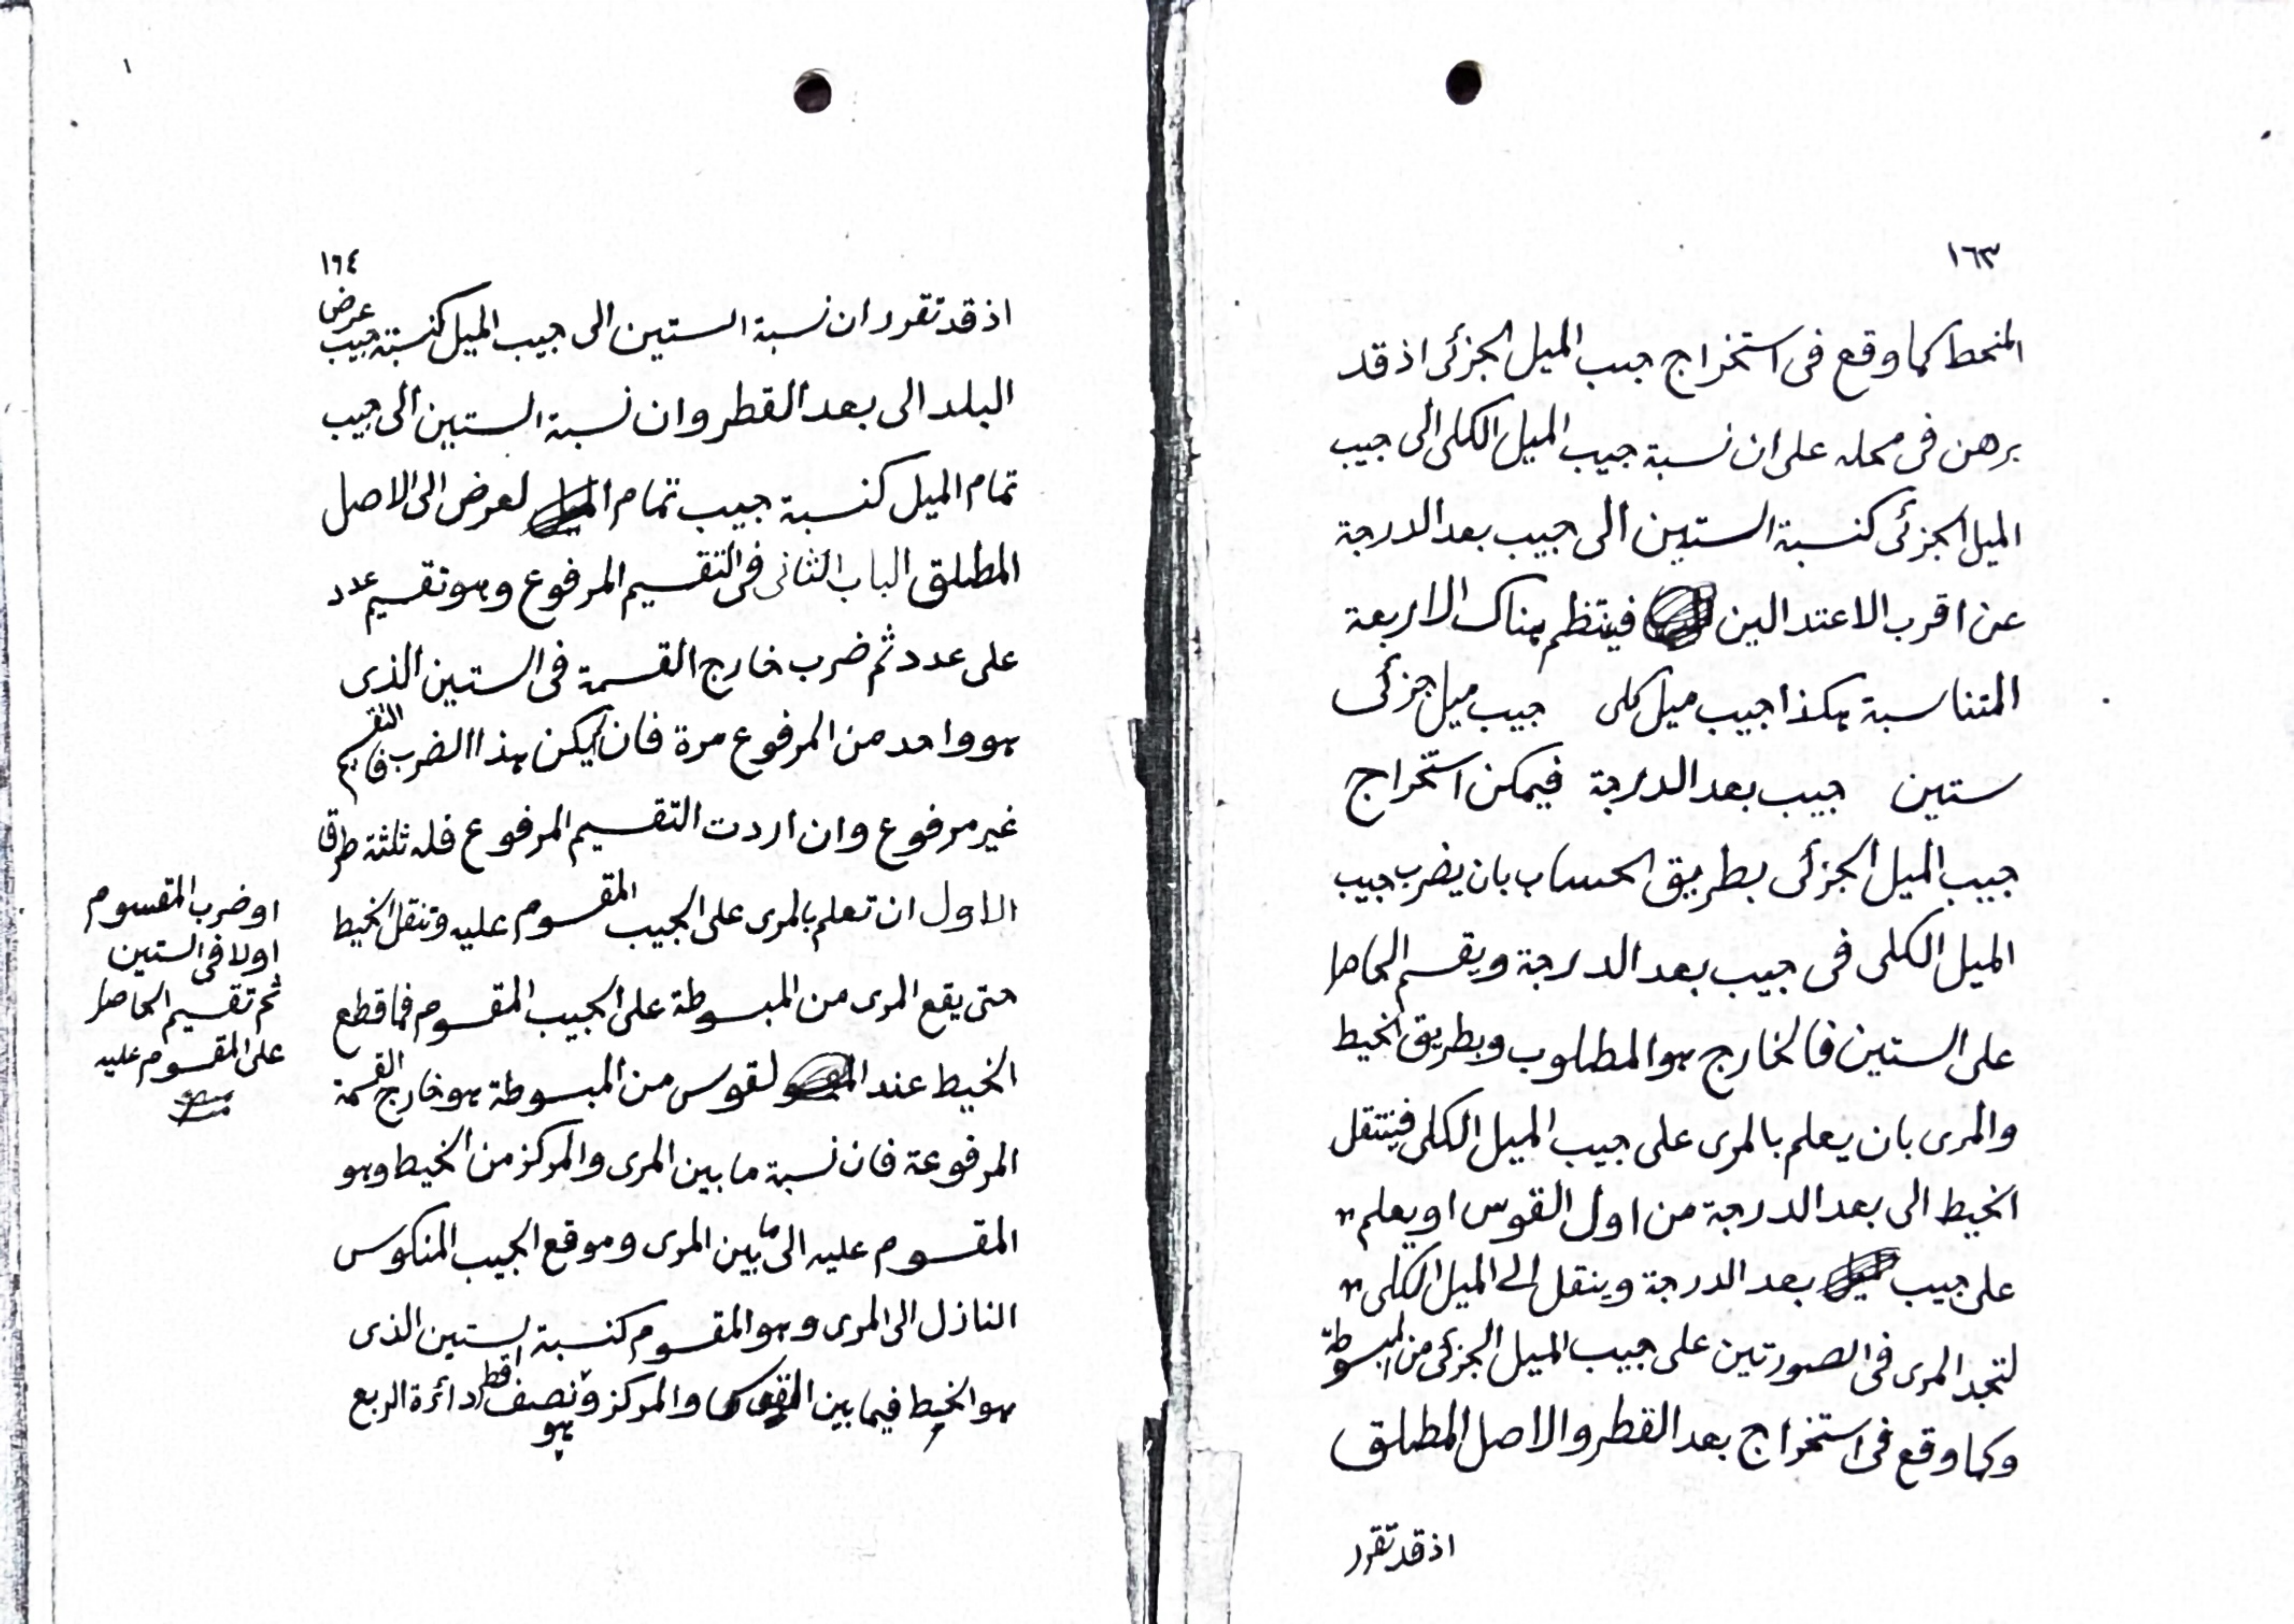 ١٦٣
المنحط كما وقع فى استخراج جيب الميل الجزئى اذ قد
برهن فى محله على ان نسبة جيب الميل الكلى الى جيب
الميل الجزئى كنسبة الستين الى جيب بعد الدرجة
عن اقرب الاعتدالين فينتظم هناك الاربعة
المتناسبة هكذا جيب ميل كلى جيب ميل جزئى
ستين جيب بعد الدرجة فيمكن استخراج
جيب الميل الجزئى بطريق الحساب بان يضرب جيب
الميل الكلى فى جيب بعد الدرجة ويقسم الحاصل
على الستين فالخارج هو المطلوب وبطريق الخيط
والمرى بان يعلم بالمرى على جيب الميل الكلى فينتقل
الخيط الى بعد الدرجة من اول القوس او يعلم
على جيب بعد الدرجة وينقل الى الميل الكلى
لتجد المرى فى الصورتين على جيب الميل الجزئى من المبسوطة
وكما وقع فى استخراج بعد القطر والاصل المطلق
اذ قد تقرر
١
١٦٤
اذ قد تقرر ان نسبة الستين الى جيب الميل كنسبة جيب عرض
البلد الى بعد القطر وان نسبة الستين الى جيب
تمام الميل كنسبة جيب تمام العرض الى الاصل
المطلق الباب الثانى فى التقسيم المرفوع وهو تقسيم عدد
على عدد ثم ضرب خارج القسمة فى الستين الذى
هو واحد من المرفوع مرة فان لم يكن هذا الضرب فالتقسيم
غير مرفوع وان اردت التقسيم المرفوع فله ثلثة طرق
الاول ان تعلم بالمرى على الجيب المقسوم عليه وتنقل الخيط
حتى يقع المرى من المبسوطة على الجيب المقسوم فما قطع
الخيط عند القوس من المبسوطة هو خارج القسمة
المرفوعة فان نسبة ما بين المرى والمركز من الخيط وهو
المقسوم عليه الى ما بين المرى وموقع الجيب المنكوس
النازل الى المرى وهو المقسوم كنسبة الستين الذى
هو الخيط فيما بين القوس والمركز وهو نصف قطر دائرة الربع
او ضرب المقسوم
اولا فى الستين
ثم تقسيم الحاصل
على المقسوم عليه